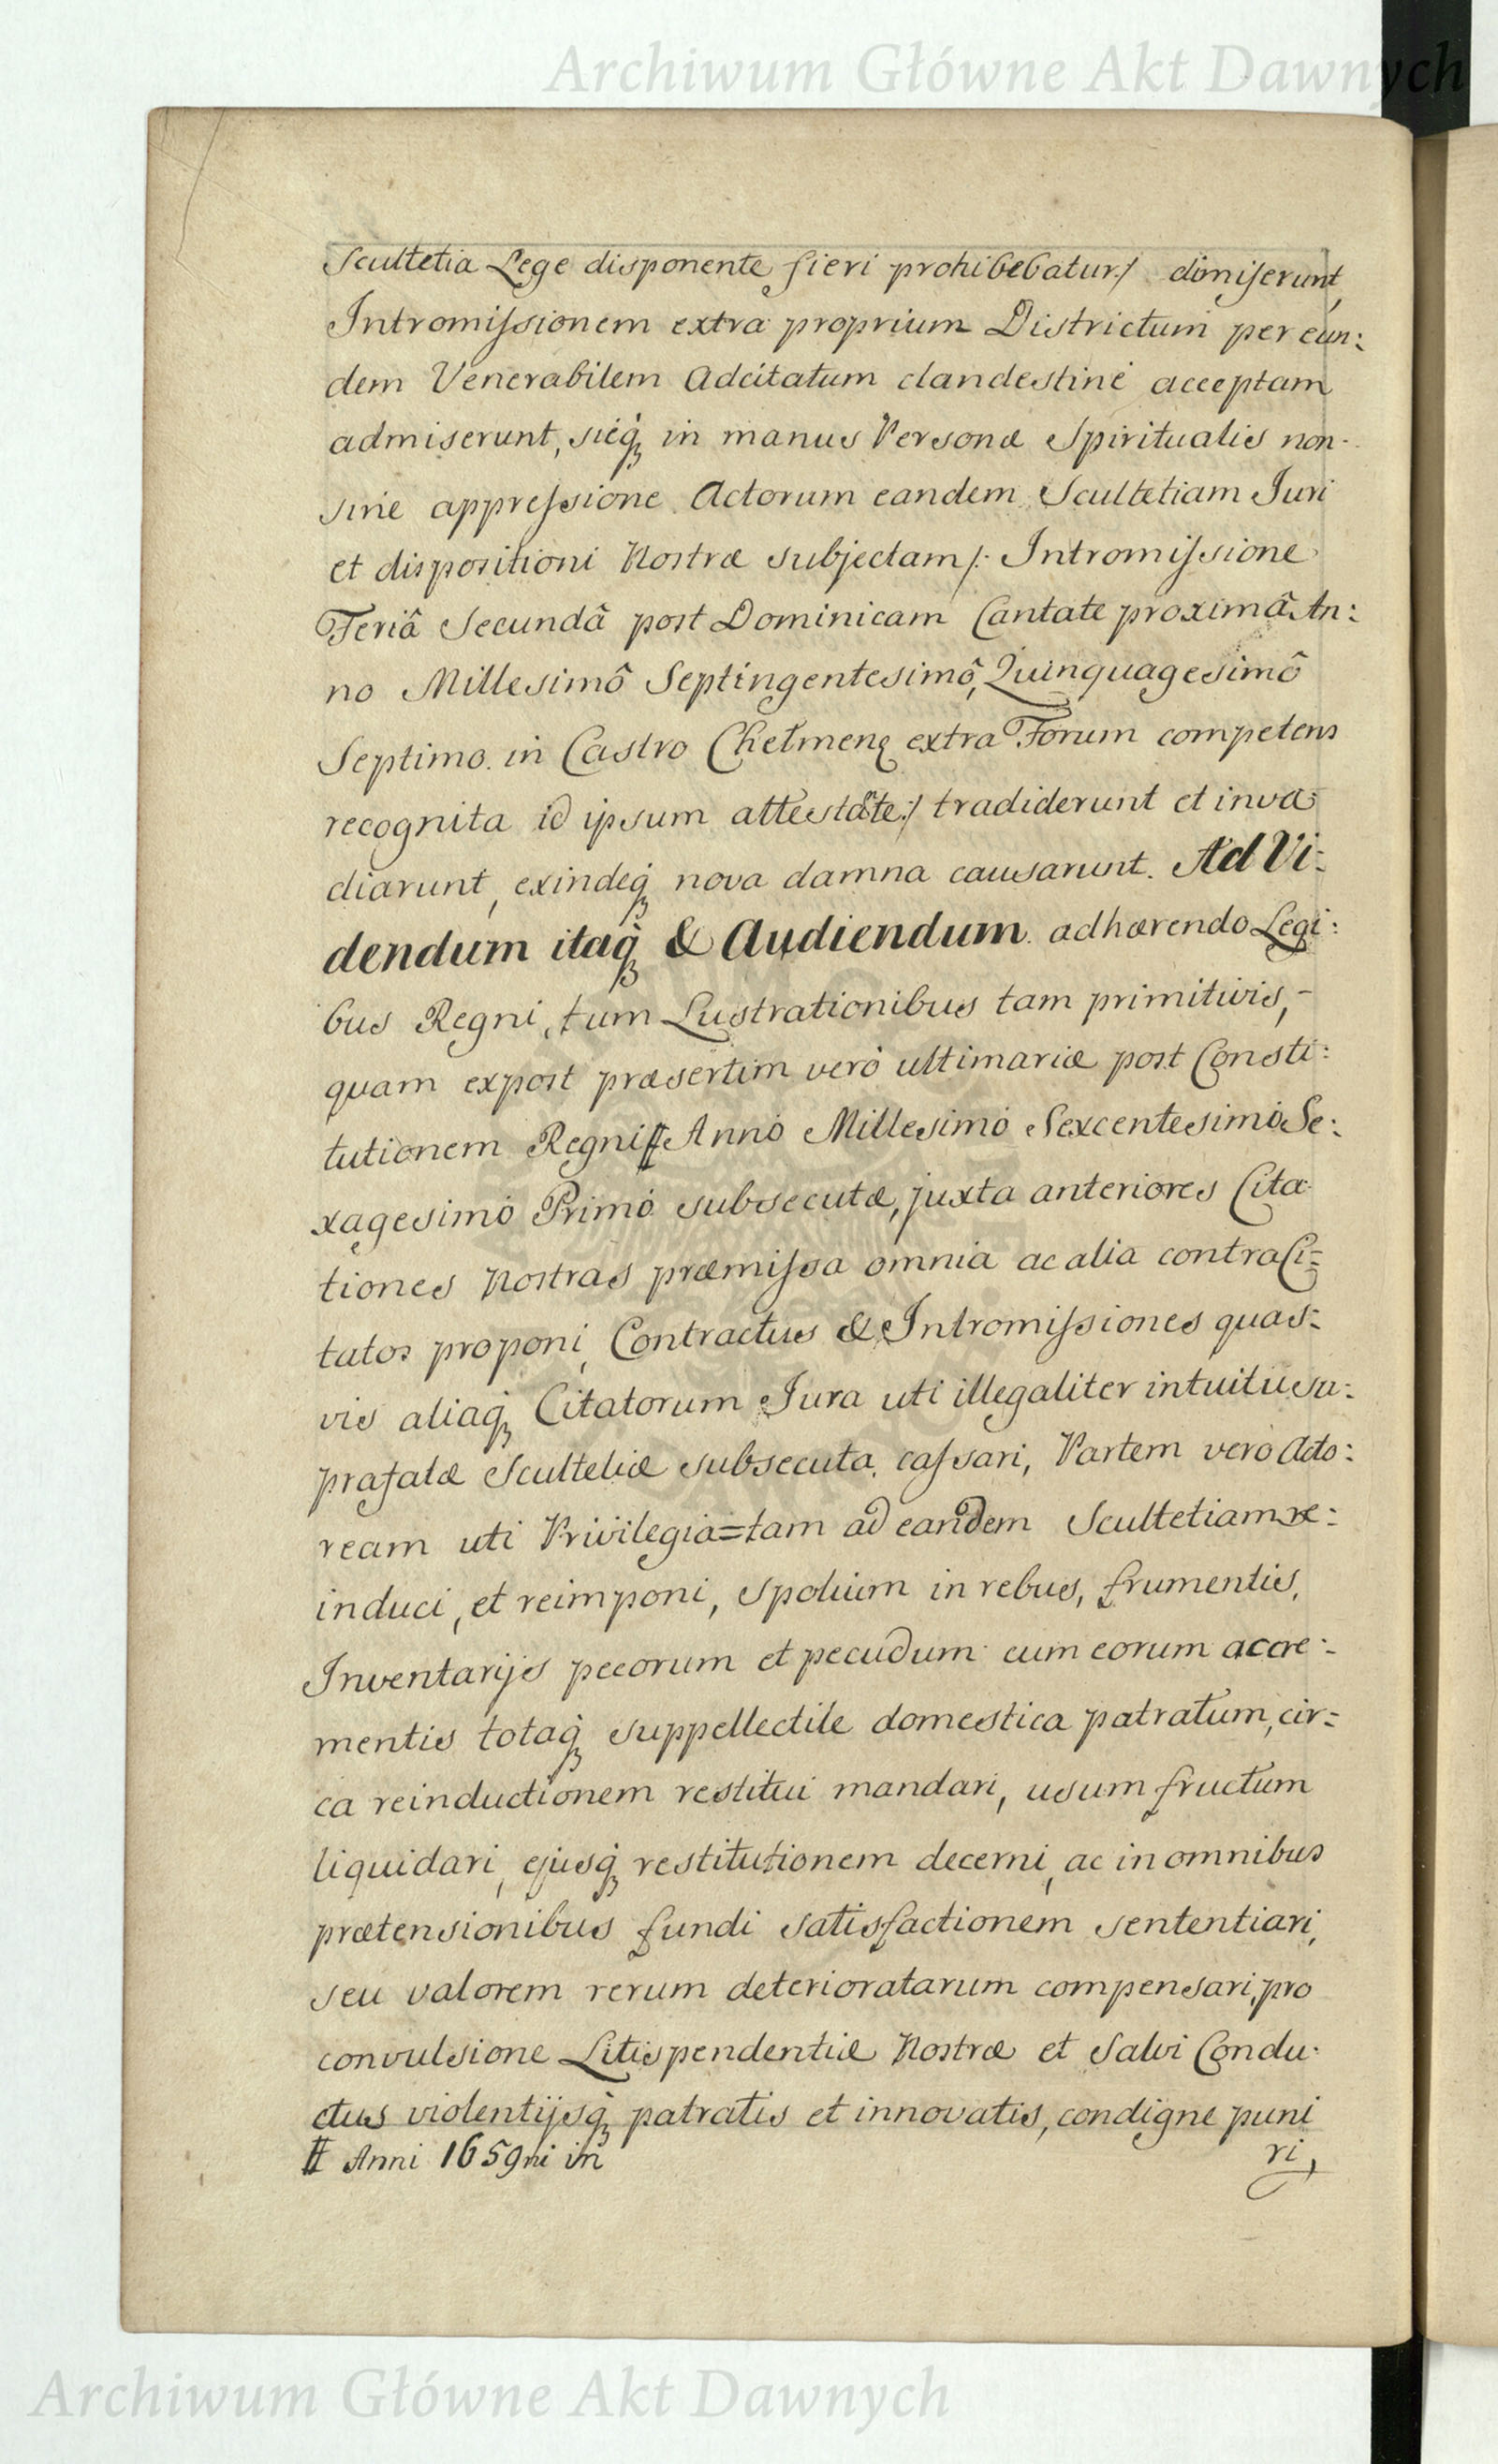 Archiwum Główne Akt Dawnych
Scultetia Lege disponente fieri prohibebatur:/ dimiserunt,
Intromissionem extra proprium Districtum per eun:
dem Venerabilem Adcitatum clandestinè acceptam
admiserunt, sicq́ꝫ in manus Personæ Spiritualis non
sine appressione Actorum eandem Scultetiam Juri
et dispositioni Nostræ subjectam /: Intromissione
Feriâ Secundâ post Dominicam Cantate proximâ An:
no Millesimô Septingentesimô, Quinquagesimô
Septimo in Castro Chełmenꝫ extra Forum competens
recognita id ipsum attestante:/ tradiderunt et inva:
diarunt, exindeq́ꝫ nova damna causarunt. Ad Vi:
dendum itaq́ꝫ & Audiendum adhærendo Legi:
bus Regni, tum Lustrationibus tam primitivis, -
quam expost præsertim verò ultimariæ post Consti:
tutionem Regni # Annò Millesimò Sexcentesimò Se:
xagesimò Primò subsecutæ, juxta anteriores Cita
tiones Nostras præmissa omnia ac alia contra Ci=
tatos proponi, Contractus & Intromissiones quas=
vis aliaq́ꝫ Citatorum Jura uti illegaliter intuitu su:
prafatæ Scultetiæ subsecuta, cassari, Partem verò Acto:
ream uti Privilegia=tam ad eandem Scultetiam re:
induci, et reimponi, spolium in rebus, frumentis,
Inventarijs pecorum et pecudum cum eorum accre:
mentis totaq́ꝫ suppellectile domestica patratum, cir=
ca reinductionem restitui mandari, usum fructum
liquidari, ejusq́ꝫ restitutionem decerni, ac in omnibus
prætensionibus fundi satisfactionem sententiari,
seu valorem rerum deterioratarum compensari, pro
convulsione Litispendentiæ Nostræ et Salvi Condu:
ctus violentijsq́ꝫ patratis et innovatis, condigne puni
# Anni 1659ni in
ri,
Archiwum Główne Akt Dawnych